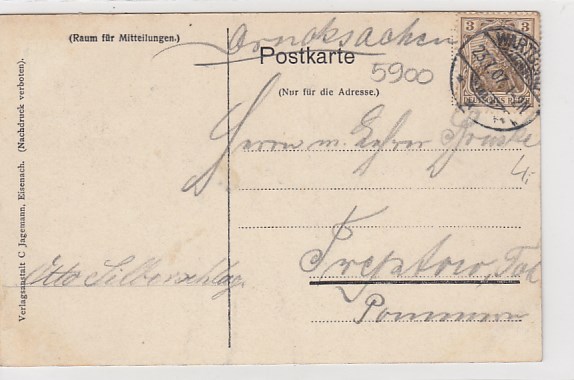 (Raum für Mitteilungen.)
Drucksachen
Postkarte
5900
(Nur für die Adresse.)
3 3
WARTBURG
Herrn m. Lehrer
Treptow, Tol
Pommern
Otto Silberschlag.
Verlagsanstalt C Jagemann, Eisenach. (Nachdruck verboten).